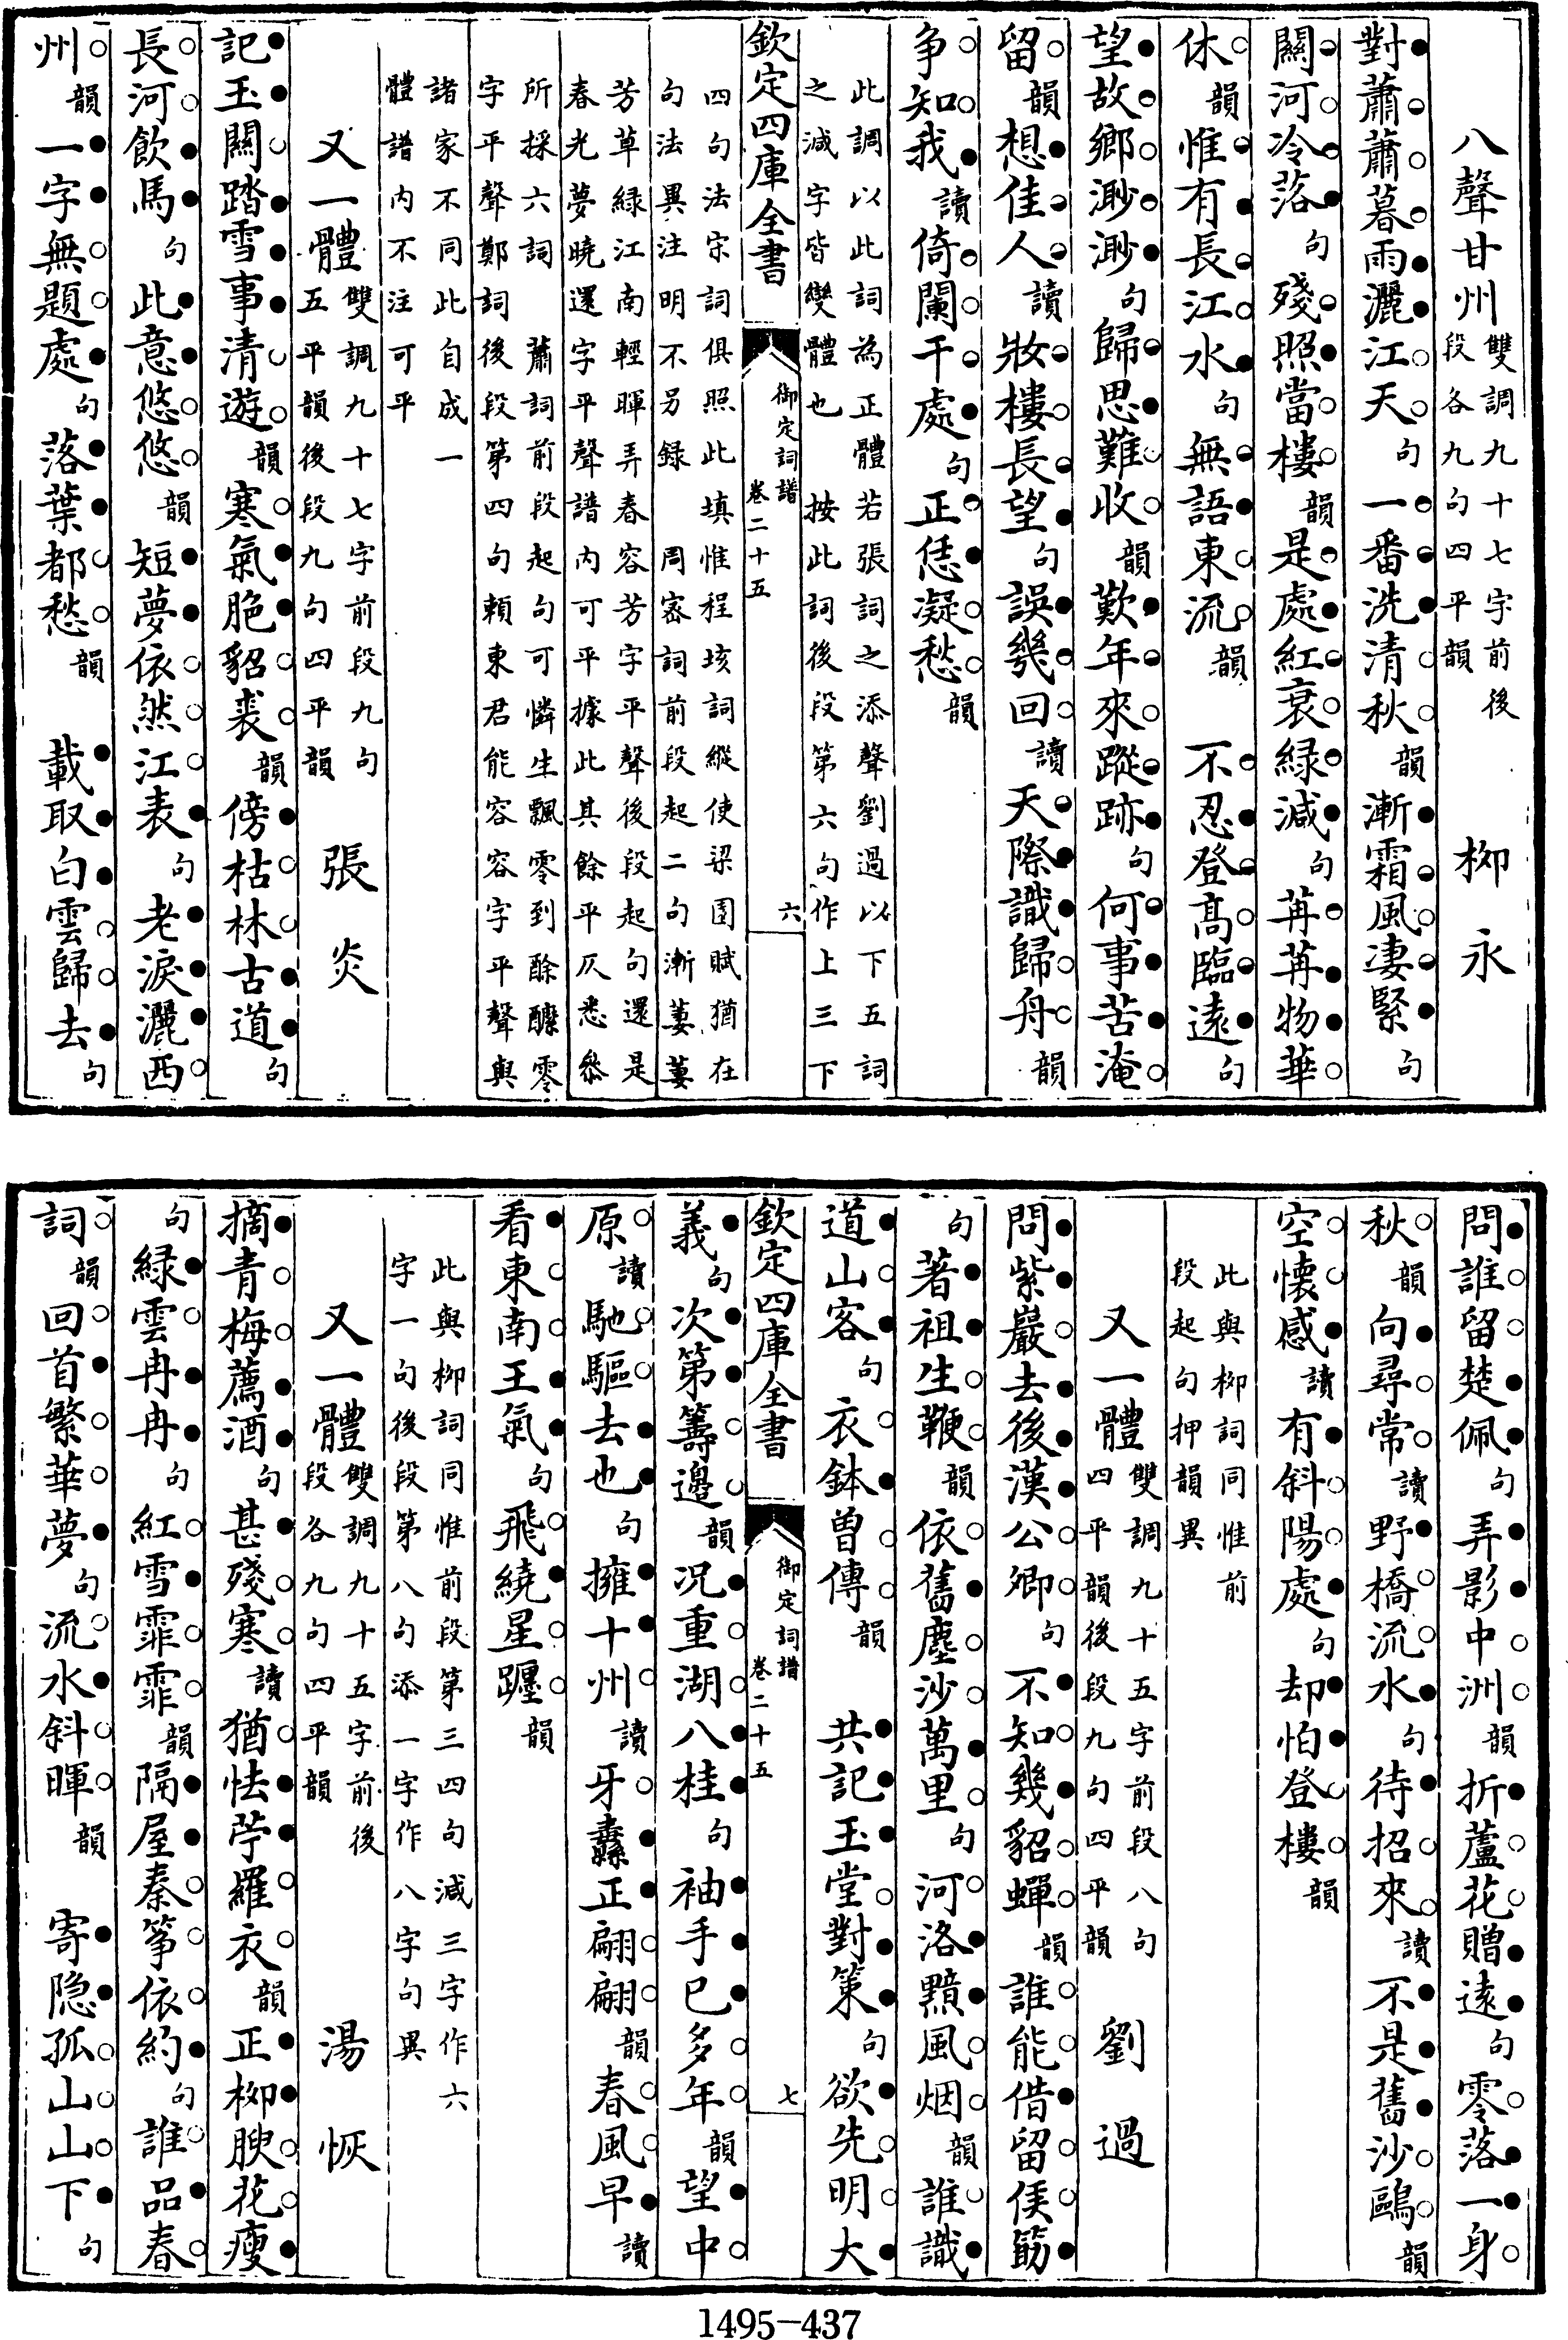 八聲甘州雙調九十七字前後段各九句四平韻 柳永
對蕭蕭暮雨灑江天句一番洗清秋韻漸霜風凄緊句
關河冷落句殘照當樓韻是處紅衰緑減句苒苒物華
休韻惟有長江水句無語東流韻 不忍登高臨遠句
望故鄉渺渺句歸思難收韻歎年來蹤跡句何事苦淹
留韻想佳人讀妝樓長望句誤幾回讀天際識歸舟韻
争知我讀倚闌干處句正恁凝愁韻
此調以此詞為正體若張詞之添聲劉過以下五詞
之減字皆變體也 按此詞後段第六句作上三下
欽定四庫全書 御定詞譜 卷二十五 六
四句法宋詞俱照此填惟程垓詞縱使梁園賦猶在
句法異注明不另録 周密詞前段起二句漸萋萋
芳草緑江南輕暉弄春容芳字平聲後段起句還是
春光夢曉還字平聲譜内可平據此其餘平仄悉叅
所採六詞 蕭詞前段起句可憐生飄零到酴醾零
字平聲鄭詞後段第四句頼東君能容容字平聲與
諸家不同此自成一
體譜内不注可平
又一體雙調九十七字前段九句五平韻後段九句四平韻 張炎
記玉關踏雪事清遊韻寒氣脆貂裘韻傍枯林古道句
長河飲馬句此意悠悠韻短夢依然江表句老淚灑西
州韻一字無題處句落葉都愁韻 載取白雲歸去句
問誰留楚佩句弄影中洲韻折蘆花贈逺句零落一身
秋韻向尋常讀野橋流水句待招來讀不是舊沙鷗韻
空懐感讀有斜陽處句却怕登樓韻
此與柳詞同惟前
段起句押韻異
又一體雙調九十五字前段八句四平韻後段九句四平韻 劉過
問紫巖去後漢公卿句不知幾貂蟬韻誰能借留侯筯
句著祖生鞭韻依舊塵沙萬里句河洛黯風烟韻誰識
道山客句衣鉢曽傳韻 共記玉堂對策句欲先明大
欽定四庫全書 御定詞譜 卷二十五 七
義句次第籌邊韻况重湖八桂句袖手已多年韻望中
原讀馳驅去也句擁十州讀牙纛正翩翩韻春風早讀
看東南王氣句飛繞星躔韻
此與柳詞同惟前段第三四句減三字作六
字一句後段第八句添一字作八字句異
又一體雙調九十五字前後段各九句四平韻 湯恢
摘青梅薦酒句甚殘寒讀猶怯苧羅衣韻正柳腴花瘦
句緑雲冉冉句紅雪霏霏韻隔屋秦筝依約句誰品春
詞韻回首繁華夢句流水斜暉韻 寄隐孤山山下句
1495-437